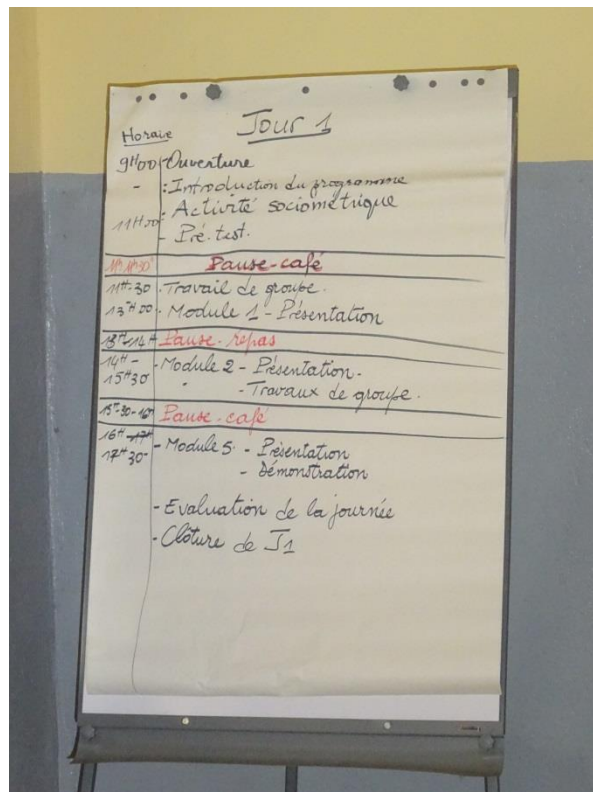 Jour 1
Horaire
9H00 - Ouverture
- : Introduction du programme
: Activité sociométrique
11H00 - Pré-test.
11H-11H30' Pause-café
11H-30 - Travail de groupe.
13H00 - Module 1 - Présentation
13H-14H Pause-repas
14H - - Module 2 - Présentation -
15H30 " - Travaux de groupe.
15H-30-16H Pause-café
16H-17H - Module 5 - Présentation
17H30- - Démonstration
- Evaluation de la journée
- Clôture de J1